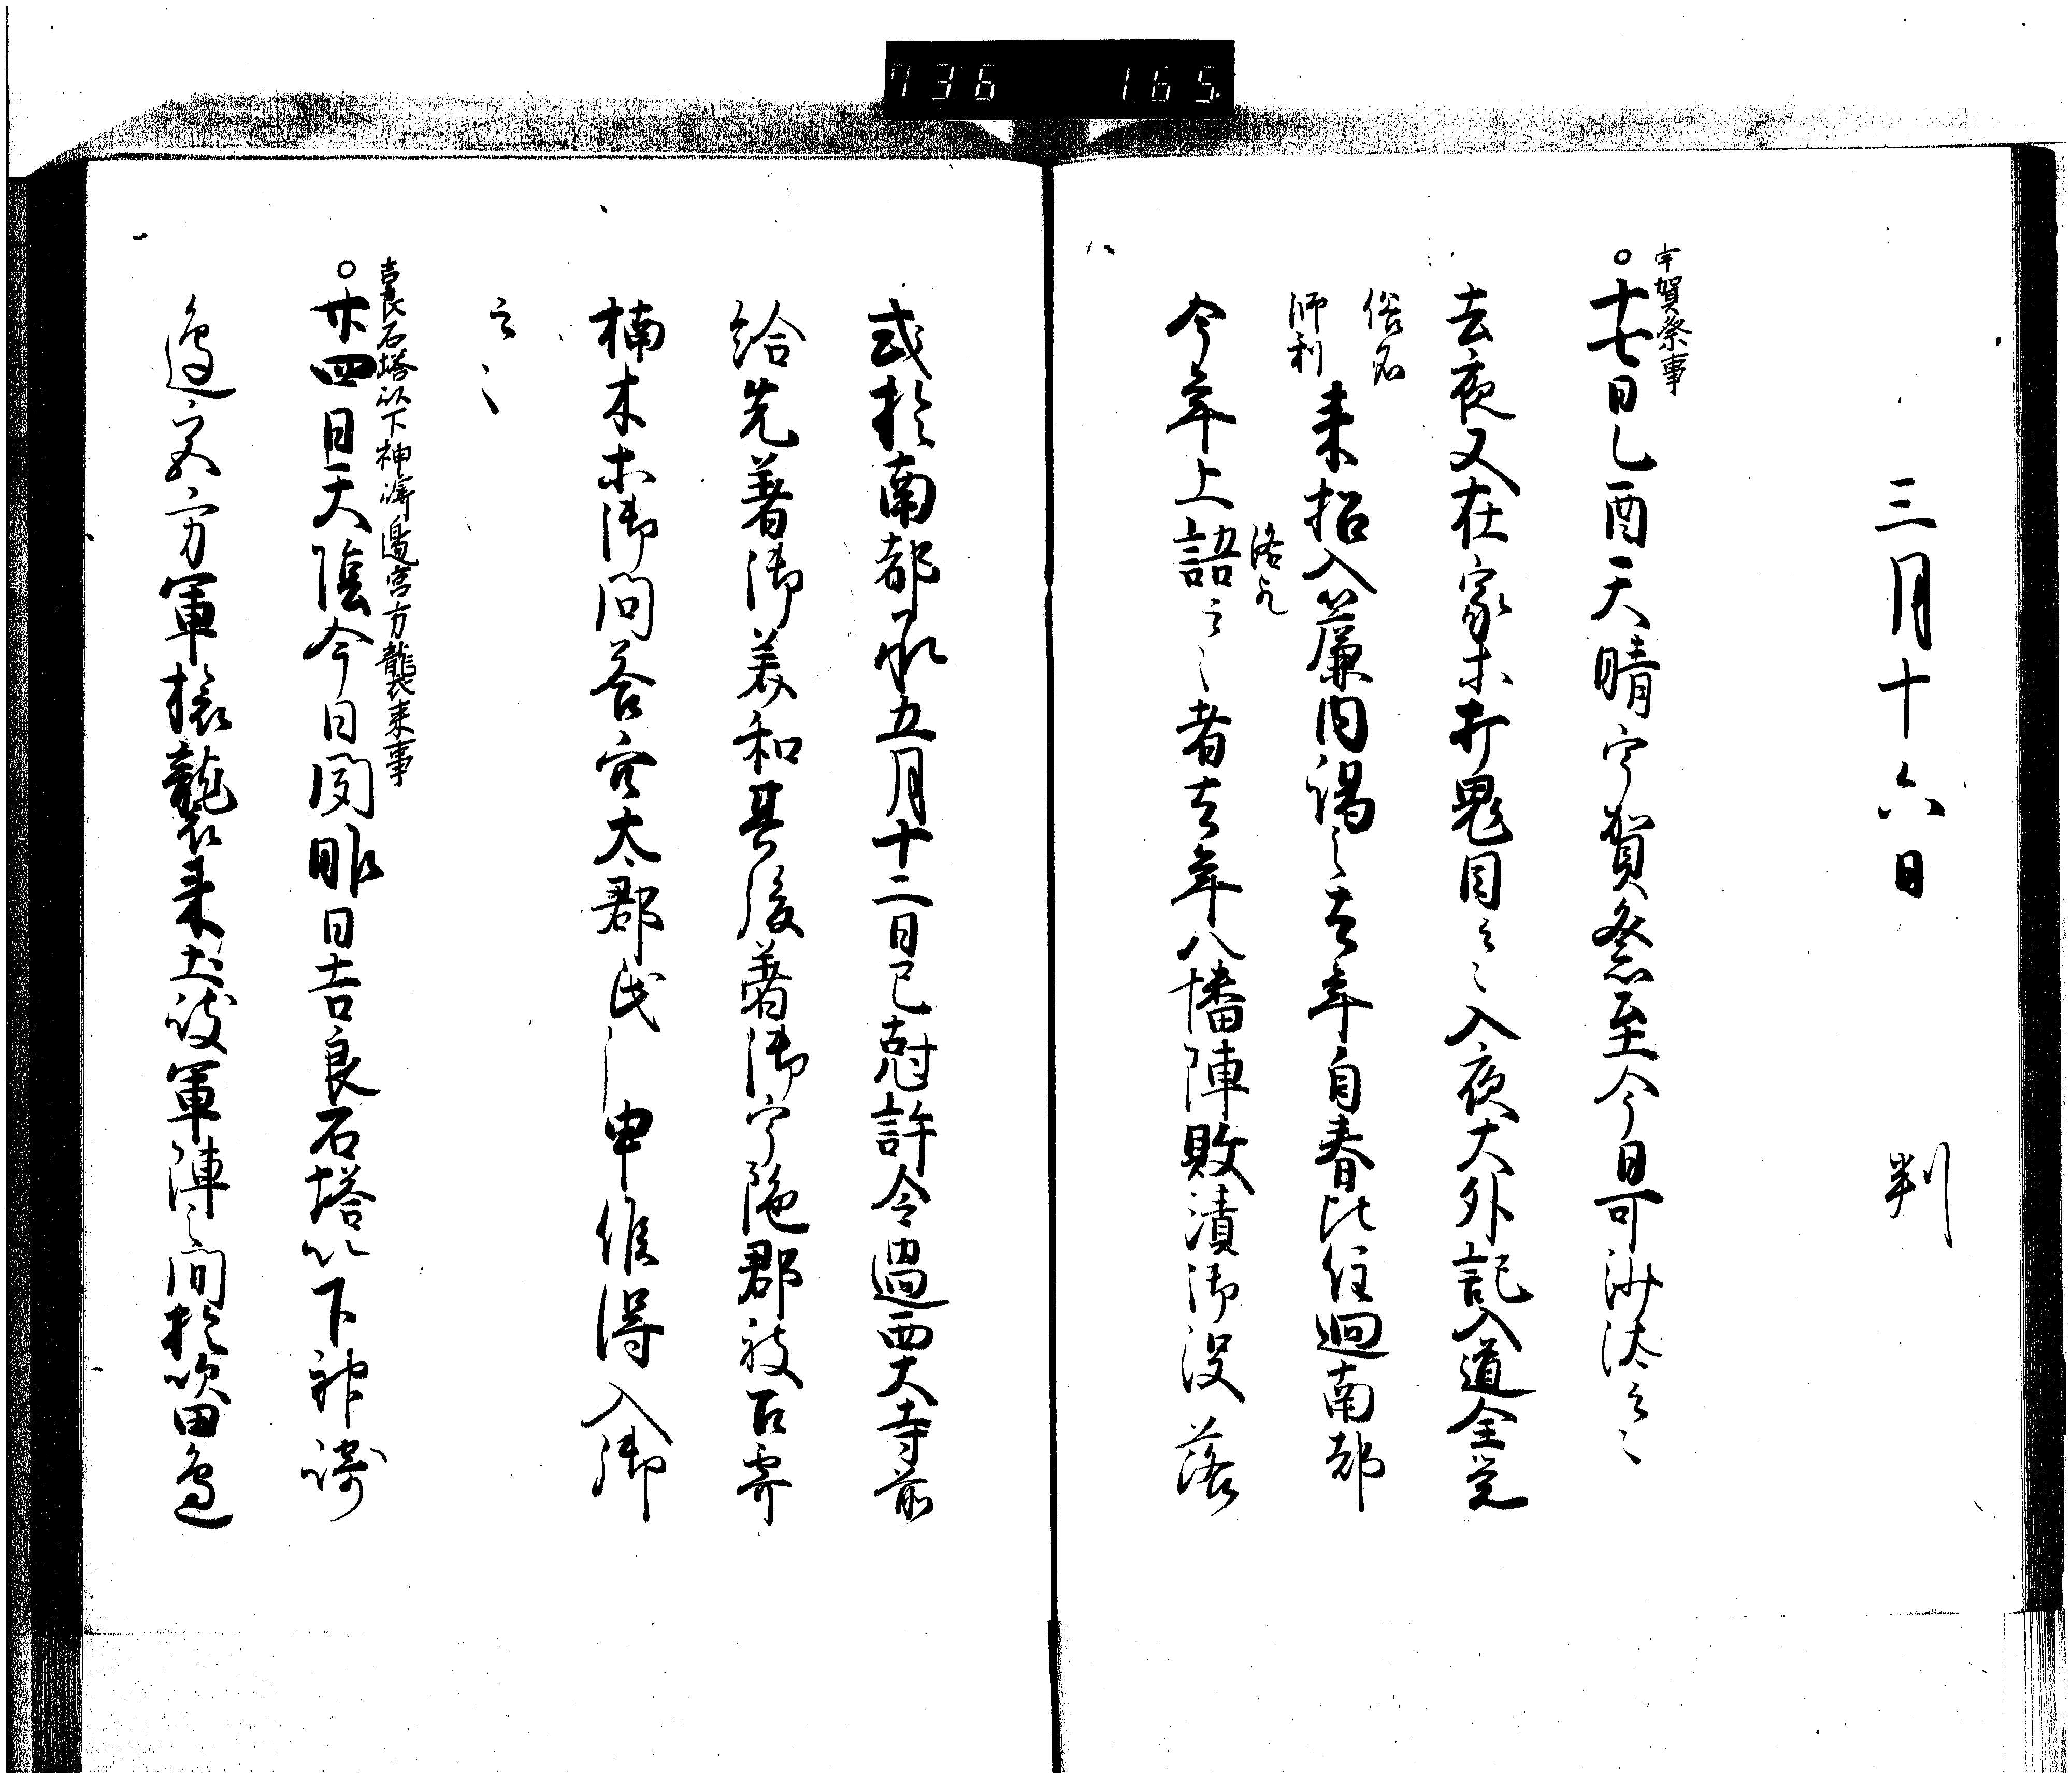 736 165
三月十六日 判
宇賀祭事
○十七日乙酉天晴宇賀祭至今日可沙汰云々
去夜又在家木打鬼目云々入夜大外記入道全覚
俗名
師利
来招入簾内謁之去年自春比住廻南都
洛凡
今年上語云々者去年八幡陣敗漬御没落
或於南都承五月十二日巳尅許令過西大寺前
給先著御美和其後著御宇陁郡被召寄
楠木木御問答宮太郡民申候得入御
云々
吉良石塔以下神崎邊宮方襲来事
○廿四日天陰今日聞昨日吉良石塔以下神崎
邊宮方軍旅襲来土岐軍陣之間於吹田邊